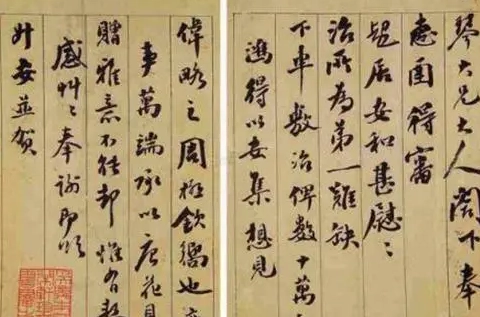 琴大兄大人閣下奉
惠函得審
起居安和甚慰〻
治所為第一難缺
下車敷治俾數十萬
鴻得以安集想見
偉略之周極欽嚮也
事萬端承以唐花見
贈雅意不能却惟有
感艸〻奉謝即頌
升安並賀